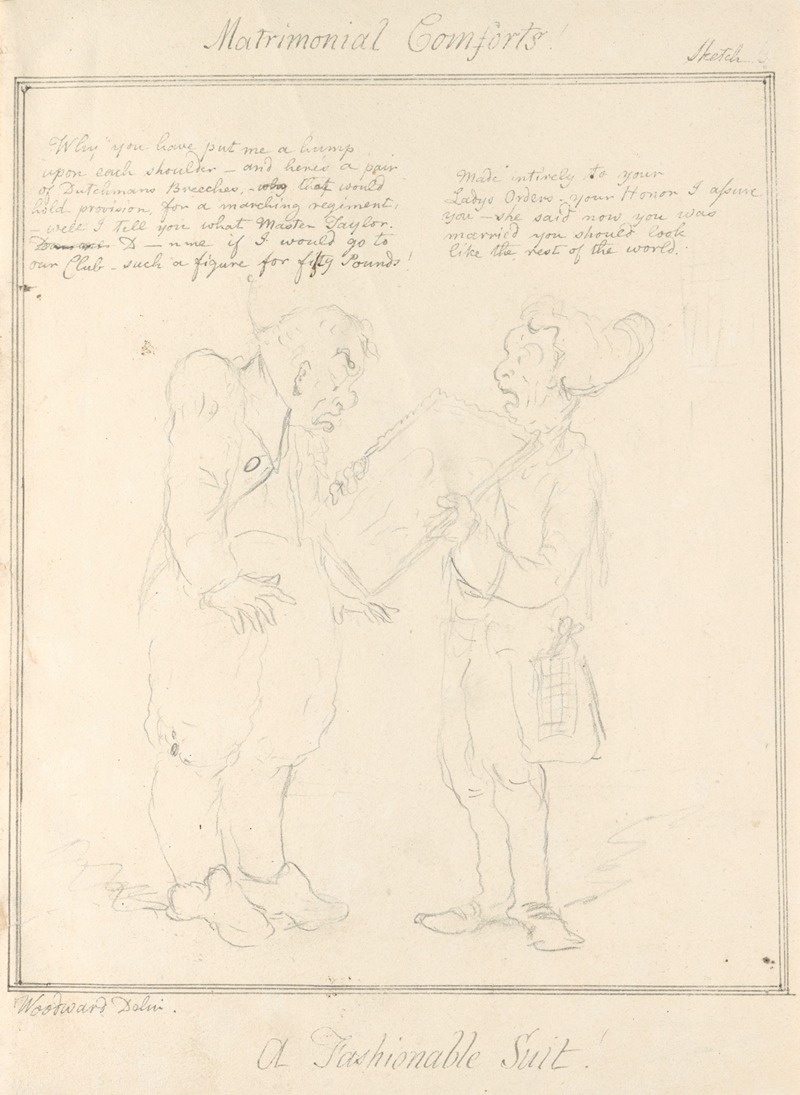 Matrimonial Comforts!
Sketch
Why you have put me a hump
upon each shoulder – and here's a pair
of Dutchmans Breeches, – why that would
hold provision, for a marching regiment,
– well I tell you what Master Taylor.
D – n me if I would go to
our Club – such a figure for fifty Pounds!
Made intirely to your
Ladys Orders – your Honor I assure
you – she said now you was
married you should look
like the rest of the world.
Woodward Delin.
A Fashionable Suit!